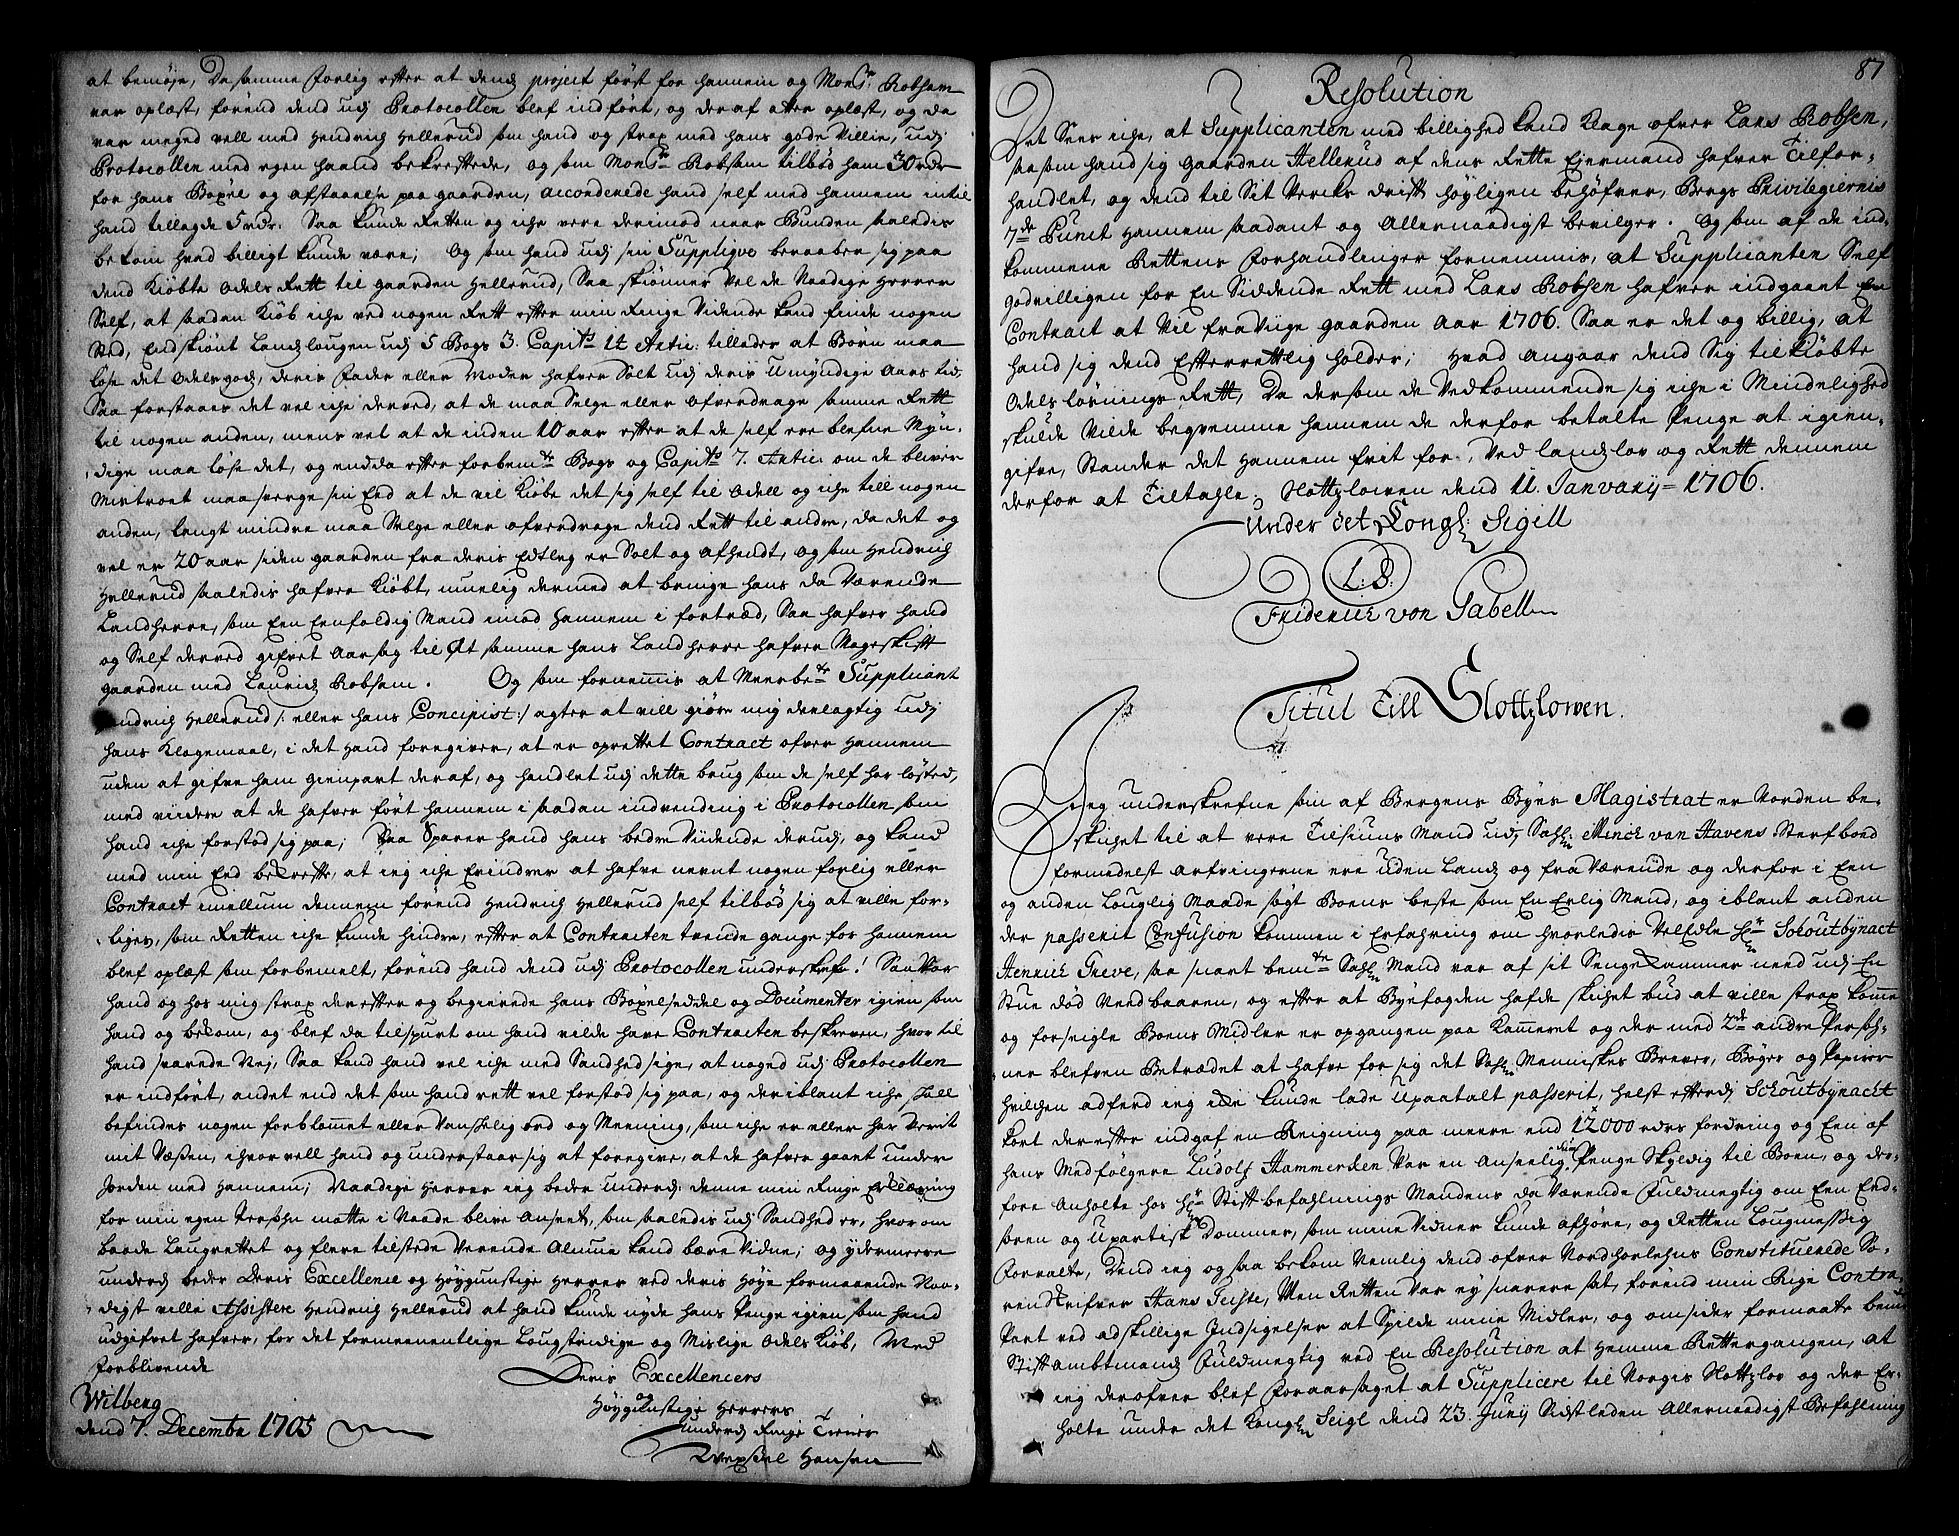 at bemøje, Da samme forlig efter at dend project først for hannem og Mons:r Robsam
var oplæst, førend dend udj Protocollen blef indført, og deraf atter oplæst, og da
var meged vell med Hendrich Hellerud som hand og strax med hans gode Villie, udj
Protocollen med egen haand bekreftede, og som Mons:r Robsam tilbød ham 30 rdr
for hans Bøxel og afstaaelse paa gaarden, accorderede hand self med hannem intil
hand tillagde 5 rdr: Saa kunde Retten og iche vere derimod naar Bunden saaledis
bekom hvad billigt kunde være; Og som hand udj sin Supplique beraaber sig paa
dend kiøbte Odels Rett til gaarden Hellerud, Saa skiønner vel de Naadige Herrer
Self, at saaden kiøb iche ved nogen Rett efter min Ringe Vidende kand finde nogen
sted, Endskiønt Landslougen udj 5 Bogs 3. Capit:s 12 Artic: tilleder at Børn maa
løse det Odelsgods, deris Fader eller Moder hafver Solt udj deris Umyndige Aars tid
Saa forstaaes det vel iche derved, at de maa Selge eller Ofverdrage samme Rett
til nogen anden, mens vel at de inden 10 aar efter at de self ere blefne Myn-
dige maa løse det, og endda efter forbem:te Bogs og Capit:s 7. Artic: om de bliver
Mistroet maa sverge sin Eed at de vil kiøbe det sig self til Odell og iche till nogen
anden, langt mindre maa Selge eller ofverdrage dend Rett til andre, da det og
vel er 20 aar siden gaarden fra deris Edtleg er Solt og afhendt, og som Hendrich
Hellerud saaledis hafver kiøbt, muelig dermed at bringe hans da Værende
Landherre, som Een Eenfoldig Mand imod hannem i fortræd, Saa hafver hand
og Self derved gifvet Aarsag til At samme hans Landherre hafver Mageskift
gaarden med Lauridz Robsam. Og som fornemmis at Meerbe:te Supplicant
Hendrich Hellerud /: eller hans Concipist :/ agter at vill giøre mig deelagtig udj
hans Klagemaal, i det Hand foregiver, at er oprettet Contract ofver Hannem
uden at gifve ham gienpart deraf, og handlet udj dette brug som de self har løsted,
med viidere at de hafver ført hannem i saadan indvending i Protocollen som
hand iche forstod sig paa; Saa Sparer hand hans bedre Viidende derudj, og kand
med min Eed bekrefte, at ieg iche Erindrer at hafve nevnt nogen forlig eller
Contract imellum dennem førend Hendrich Hellerud self tilbød sig at ville for-
liges, som Retten iche kunde hindre, efter at Contracten trende gange for hannem
blef oplæst som forbemelt, førend hand dend udj Protocollen underskrefv! Saa Var
hand og hos mig strax derefter og begierede hans Bøxelseddel og Documenter igien som
hand og bekom, og blef da tilspurt om hand vilde have Contracten beskreven, hvortil
hand svarede Nej, Saa kand hand vel iche med Sandhed sige, at noged udj Protocollen
er indført, andet end det som hand rett vel forstod sig paa, og deriblant iche skall
befindes nogen forblommet eller Vanskelig ord og Meening, som iche er eller har Verit
mit Væsen, ihvorvell hand og understaar sig at foregive, at de hafver gaaet under
Jorden med Hannem; Naadige Herrer ieg beder underd: denne min Ringe Erklæring
for min egen Persohn maatte i Naade blive Anseet, som saaledis udj Sandhed er, hvorom
baade Laugrettet og flere tilstede Verende Almue kand bære Vidne; og ydermeere
underd: beder Deris Excellence og Høygunstige Herrer ved deris Høye formaaende Naa-
digst ville Assistere Hendrich Hellerud at hand kunde nyde hans Penge igien som hand
udgifvet hafver, for det formeenentlige Lougstridige og Mislige Odels kiøb, Med
Forblivende
Deris Excellencers
og
Høygunstige Herrers
underd: Ringe Tiener
Hansen
Wilberg
dend 7. Decembr 1705
87
Resolution
Det Sees iche, at Supplicanten med billighed kand klage ofver Lars Robsen,
saasom hand sig gaarden Hellerud af dens Rette Ejermand hafver Tilfor-
handlet, og dend til Sit Vercks drift høyligen behøfver, Bergs Privilegiernis
7de Punct Hannem saadant og Allernaadigst bevilger. Og som af de ind-
kommene Rettens forhandlinger fornemmis, at Supplicanten Self
godvilligen for En Siddende Rett med Lars Robsen hafver indgaaet Een
Contract at vil fraviige gaarden Aar 1706. Saa er det og billig, at
hand sig dend Efterrettelig holder; Hvad Angaar dend Sig tilkiøbte
Odels løsnings Rett, Da dersom de Vedkommende sig iche i Mindelighed
skulde Vilde beqvemme hannem de derfor betalte Penge at igien-
gifve, Stander det Hannem frit for, Ved landslov og Rett dennem
derfor at Tiltahle. Slottzlowen dend 11. January 1706.
Under det Kongl: Sigill
L: S:
Friderich von Gabell
Titul Till Slottzlowen.
Jeg underskrefne som af Bergens Byes Magistrat er Vorden be-
skichet til at vere Tilsiuns Mand udj Sahl: Minck von Havens Sterfboed
formedelst Arfvingerne ere uden Lands og fra Værende og derfor i Een
og anden Louglig Maade søgt Boens beste som En Erlig Mand, og iblant anden
der passerit Confusion kommen i Erfahring om hvorledis VelEdle Hr Schoutbynact
Henrich Greve, saa snart bem:te Sahl: Mand var af sit Sengekammer need udj En
Stue død Needbaaren, og efter at Byefogden hafde skichet bud at ville strax komme
og forseigle Boens Midler er opgangen paa Kammeret og der med 2de andre Persoh-
ner blefven Betrædet at hafve for sig det Sahl: Menniskes Brever, Bøger og Papirer
hvilchen adferd ieg iche kunde lade Upaatalt passerit, helst efterdj Schoutbynacht
kort derefter indgaf en Reigning paa meere end 12000 rdrs fordring og Een af
hans Medfølgere Ludolf Hammerken Var en Anseelig Sum Penge Skyldig til Boen, og der-
fore Anholte hos Hr Stiftbefahlings Mandens da Værende Fuldmegtig om Een Eed-
soren og Upartisk Dommer, som mine Vidner kunde afhøre, og Retten Lougmessig
Forvalte, Dend ieg og saa bekom Nemlig dend ofver Nordhorlehns Constituerede So-
renskrifver Hans Teiste, Men Retten Var ey snarere sat, førend min Rige Contra-
Part ved adskillige Indsigelser at Spilde mine Midler, og omsider formaate bem:te
Stiftambtmands Fuldmegtig ved En Resolution at Hemme Rettergangen, at
ieg derofver blef Foraarsaget at Supplicere til Norgis Slottzlov og der Er-
holte under det Kongl: Seigl dend 23. Junij Sidstleden Allernaadigst Befahlning